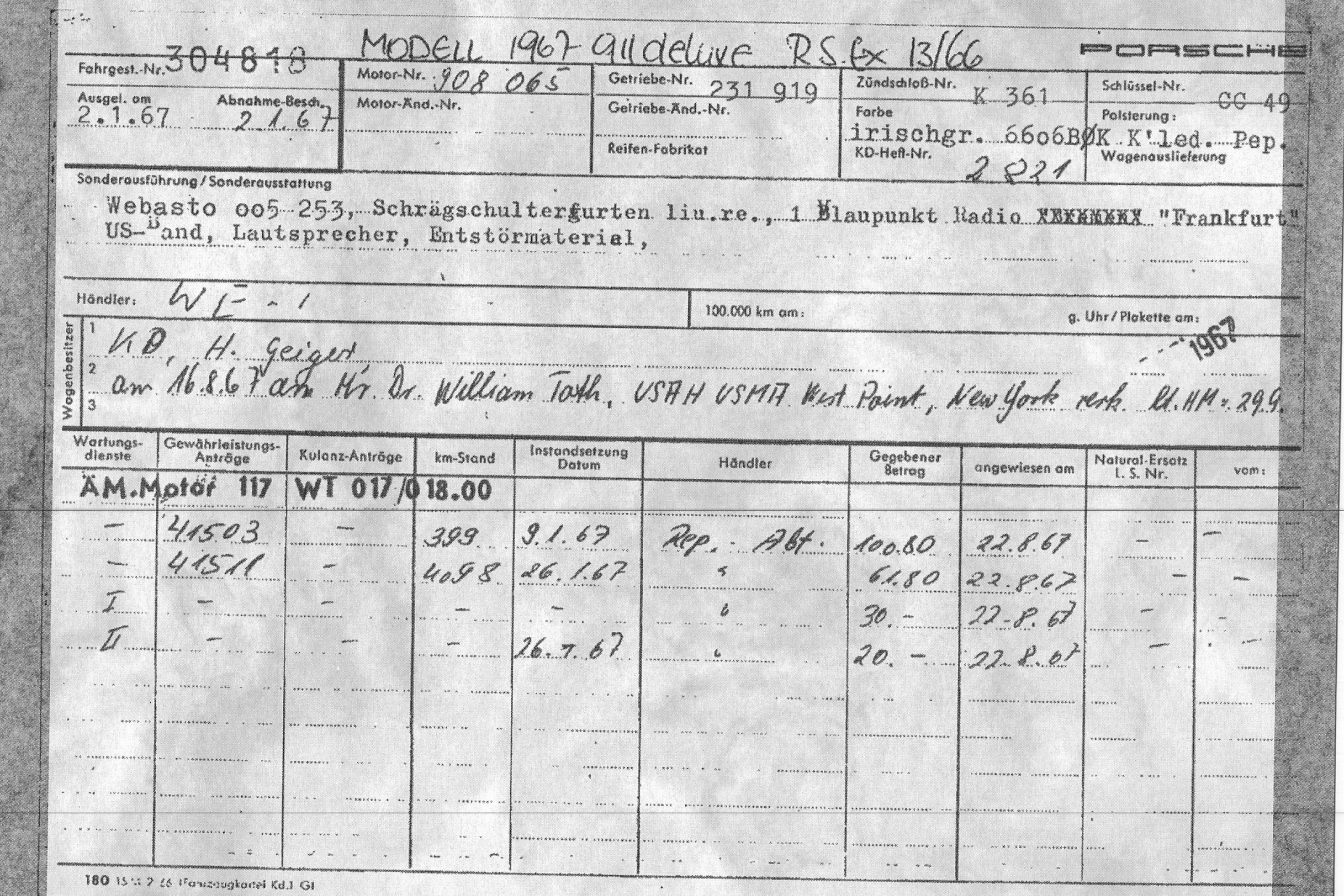 MODELL 1967 911 deluxe R.S. Ex 13/66 PORSCHE
Fahrgest.-Nr. 304818 Motor-Nr. 908 065 Getriebe-Nr. 231 919 Zündschloß-Nr. K 361 Schlüssel-Nr. CC 49
Ausgel. am 2.1.67 Abnahme-Besch. 2.1.67 Motor-Änd.-Nr. Getriebe-Änd.-Nr. Farbe irischgr. 6606BØK Polsterung: K'led. Pep.
Reifen-Fabrikat KD-Heft-Nr. 2821 Wagenauslieferung
Sonderausführung/Sonderausstattung
Webasto oo5 253, Schrägschultergurten liu.re., 1 Blaupunkt Radio XXXXXXXX "Frankfurt"
US-Band, Lautsprecher, Entstörmaterial,
Händler: WE - 1 100.000 km am: g. Uhr/Plakette am:
1967
Wagenbesitzer
1 KD, H. Geiger
2 am 16.8.67 an Hr. Dr. William Toth, USAH USMA West Point, New York verk. 29.9.
3
Wartungs-dienste Gewährleistungs-Anträge Kulanz-Anträge km-Stand Instandsetzung Datum Händler Gegebener Betrag angewiesen am Natural-Ersatz L. S. Nr. vom:
ÄM.Motor 117 WT 017/018.00
- 41503 - 399 9.1.67 Rep.-Abt. 100.80 22.8.67 - -
- 41511 - 4098 26.1.67 " 61.80 22.8.67 - -
I - - - - " 30.- 22.8.67 -
II - - - 26.7.67 " 20.- 22.8.67 - -
180